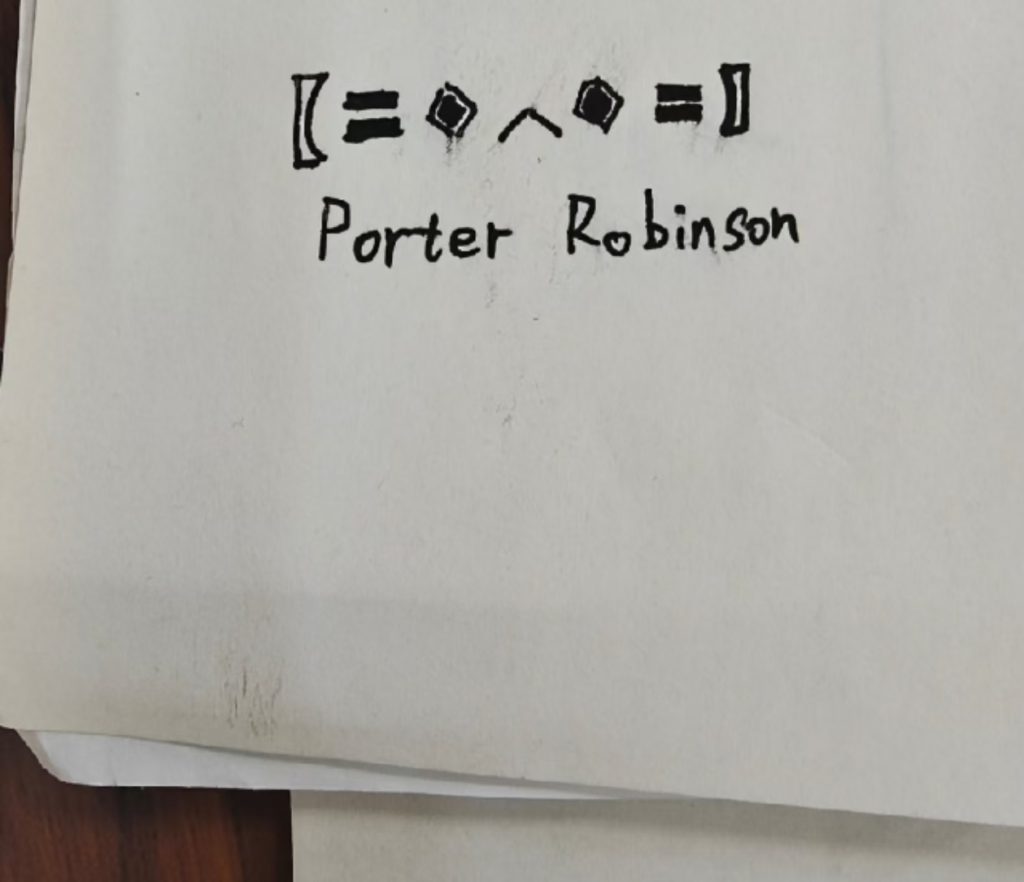 〖=◈︿◈=〗
Porter Robinson